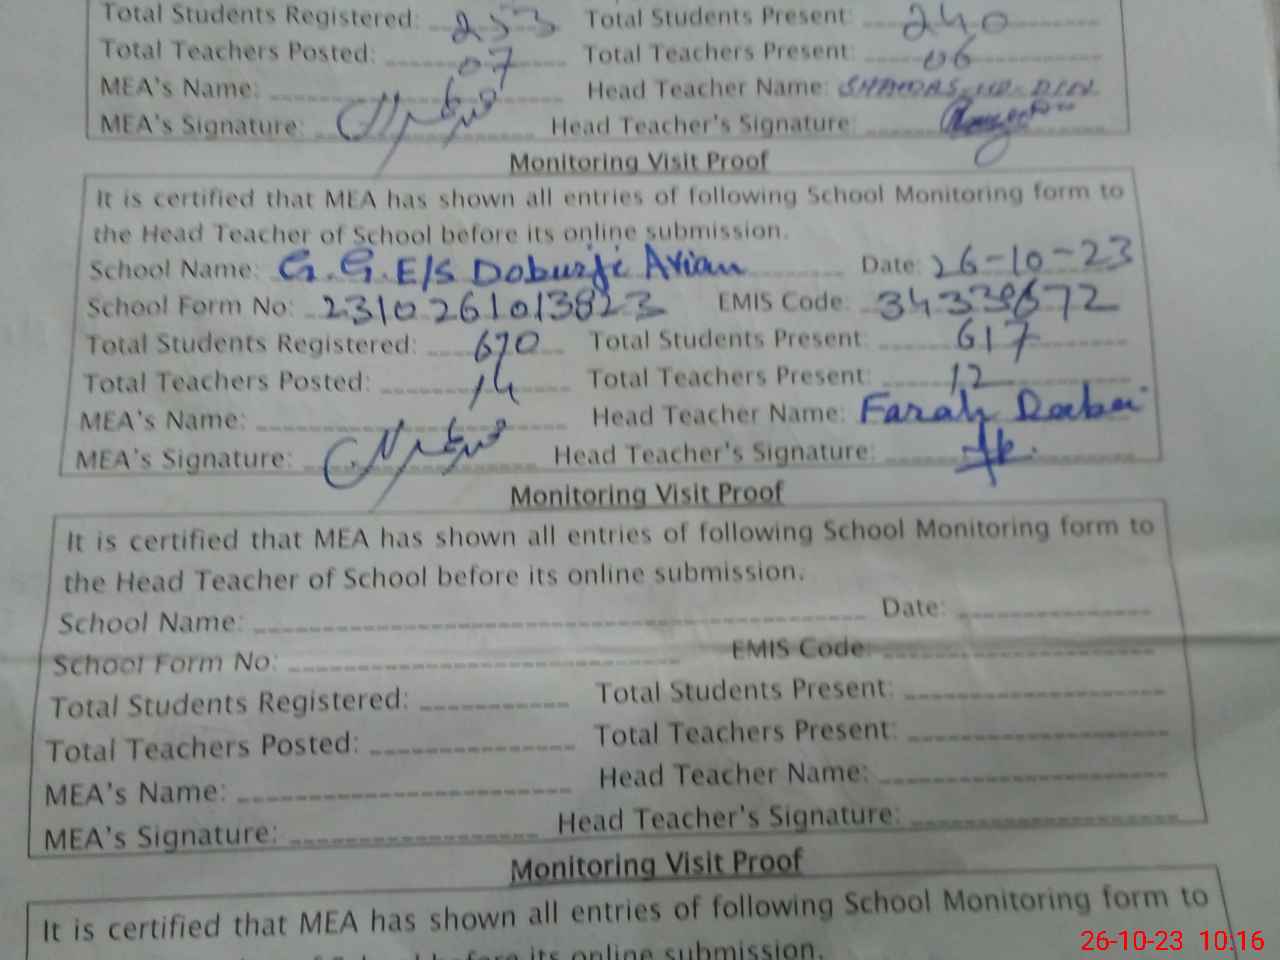 Total Students Registered: 253 Total Students Present: 240
Total Teachers Posted: 07 Total Teachers Present: 06
MEA's Name: Head Teacher Name: SHAMAS-UD-DIN
MEA's Signature: Head Teacher's Signature:
Monitoring Visit Proof
It is certified that MEA has shown all entries of following School Monitoring form to
the Head Teacher of School before its online submission.
School Name: G.G.E/S Doburji Arian Date: 26-10-23
School Form No: 231026101 3823 EMIS Code:
Total Students Registered: 670 Total Students Present: 617
Total Teachers Posted: 14 Total Teachers Present: 12
MEA's Name: Head Teacher Name: Farah
MEA's Signature: Head Teacher's Signature:
Monitoring Visit Proof
It is certified that MEA has shown all entries of following School Monitoring form to
the Head Teacher of School before its online submission.
School Name: Date:
School Form No: EMIS Code:
Total Students Registered: Total Students Present:
Total Teachers Posted: Total Teachers Present:
MEA's Name: Head Teacher Name:
MEA's Signature: Head Teacher's Signature:
Monitoring Visit Proof
It is certified that MEA has shown all entries of following School Monitoring form to
before its online submission.
26-10-23 10:16